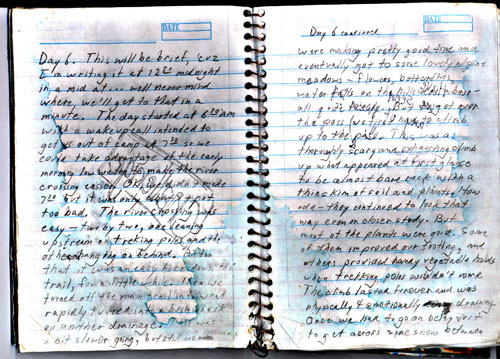 DATE
Day 6. This will be brief, 'cuz
I'm writing it at 12:00 midnight
in a mid at... well never mind
where, we'll get to that in a
minute. The day started at 6:00 AM
with a wakeup call intended to
get us out of camp at 7:00 so we
could take advantage of the early
morning low water to make the river
crossing easier. OK, we didn't make
7:00 but it was only
too bad. The river crossing was
easy - two by two, one leaning
upstream on treking poles and the
other hanging on behind. After
that it was an easy hike down the
trail, for a little while. Then we
turned off the main trail into what
rapidly turned into a
up another drainage. was
a bit slower going, but still we
DATE
Day 6 continued
were making pretty good time and
eventually got to some lovely alpine
meadows - flowers, butterflies,
water falls on the hillsides above -
all But to get over
the pass (we first had to climb
up to the pass. This was a
thoroughly scary and exhausting climb
up what appeared at first glance
to be almost bare rock with a
thick rim of soil and plants. How
- they continued to look that
way even on closer study. But
most of the plants were good. Some
of them improved our footing, and
others provided handy vegetable holds
when trekking poles wouldn't work.
The climb lasted forever and was
physically & emotionally draining.
Once we had to go on belay just
to get across some snow between